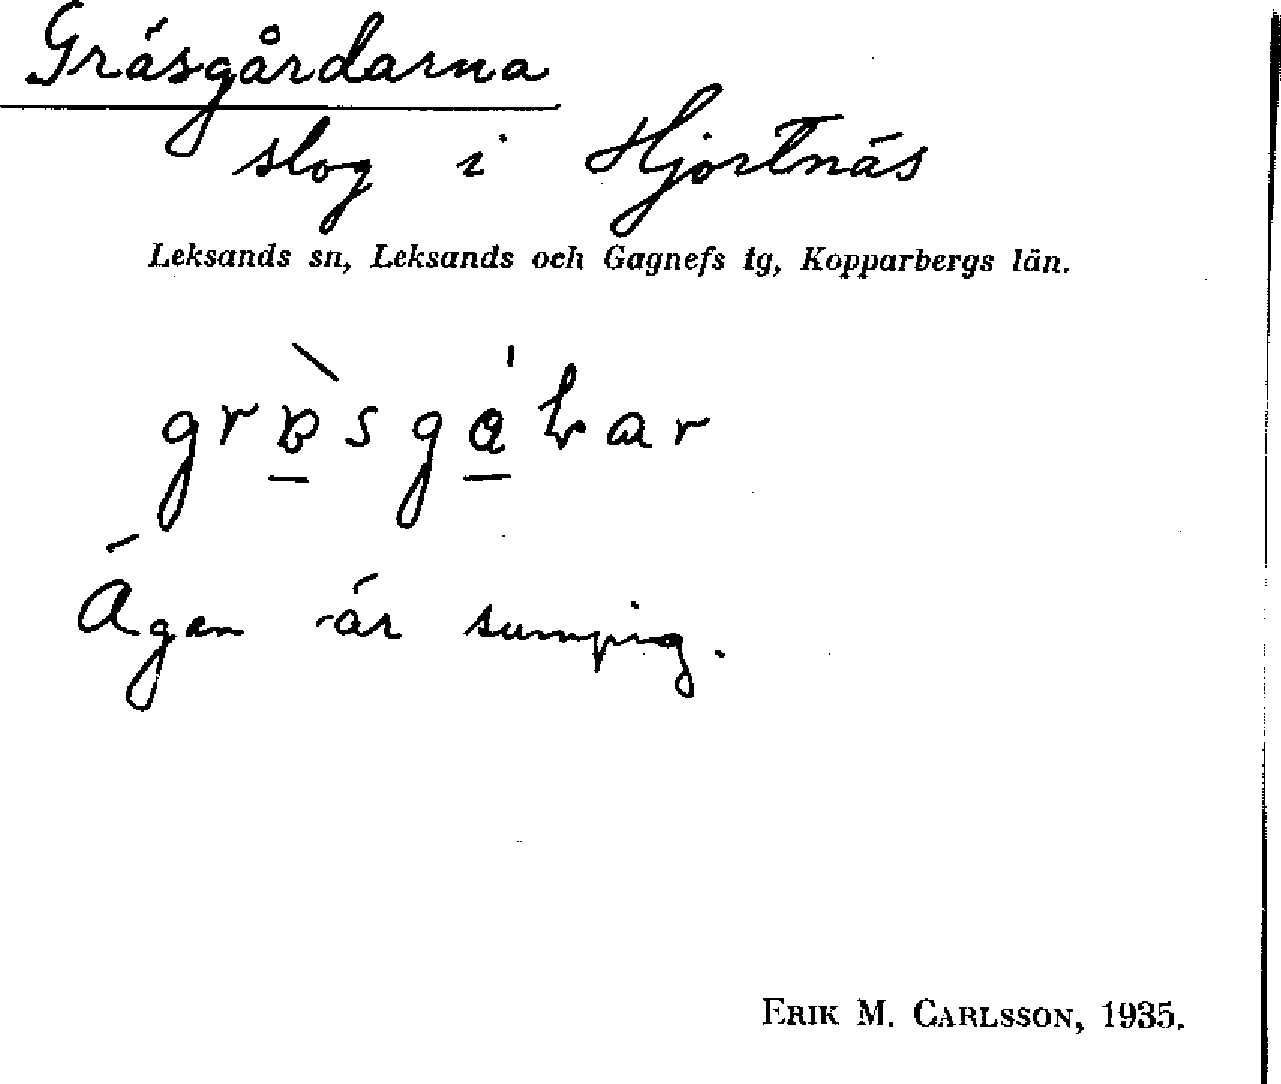 Gräsgårdarna
slog i Hjortnäs
Leksands sn, Leksands och Gagnefs tg, Kopparbergs län.
Ägan är sumpig.
ERIK M. CARLSSON, 1935.